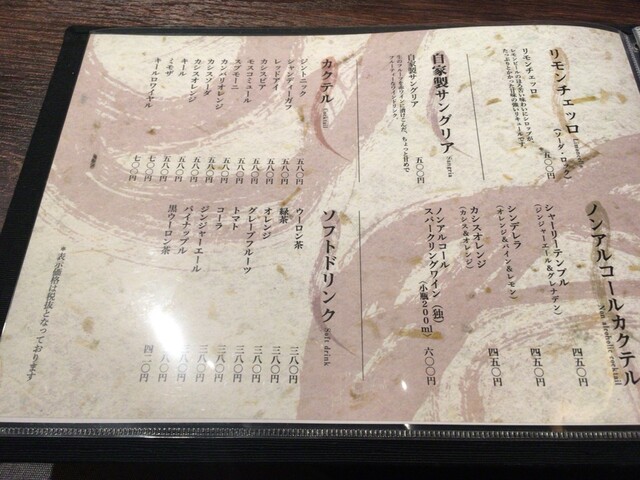 リモンチェッロ
リモンチェッロ（ソーダ・ロック） 五〇〇円
自家製サングリア Sangria
自家製サングリア 五〇〇円
カクテル Cocktail
ジントニック 五八〇円
シャンディーガフ 五八〇円
レッドアイ 五八〇円
カシスビア 五八〇円
モスコミュール 五八〇円
スプモーニ 五八〇円
カンパリオレンジ 五八〇円
カシスソーダ 五八〇円
カシスオレンジ 五八〇円
キール 五八〇円
ミモザ 七〇〇円
キールロワイヤル 七〇〇円
ノンアルコールカクテル Non alcoholic cocktail
シャーリーテンプル 四五〇円
（ジンジャーエール＆グレナデン）
シンデレラ 四五〇円
（オレンジ＆パイン＆レモン）
カシスオレンジ 四五〇円
（カシス＆オレンジ）
ノンアルコール
スパークリングワイン（独）
（小瓶200ml） 六〇〇円
ソフトドリンク Soft drink
ウーロン茶 三八〇円
緑茶 三八〇円
オレンジ 三八〇円
グレープフルーツ 三八〇円
トマト 三八〇円
コーラ 三八〇円
ジンジャーエール 三八〇円
パイナップル 三八〇円
黒ウーロン茶 四二〇円
＊表示価格は税抜となっております